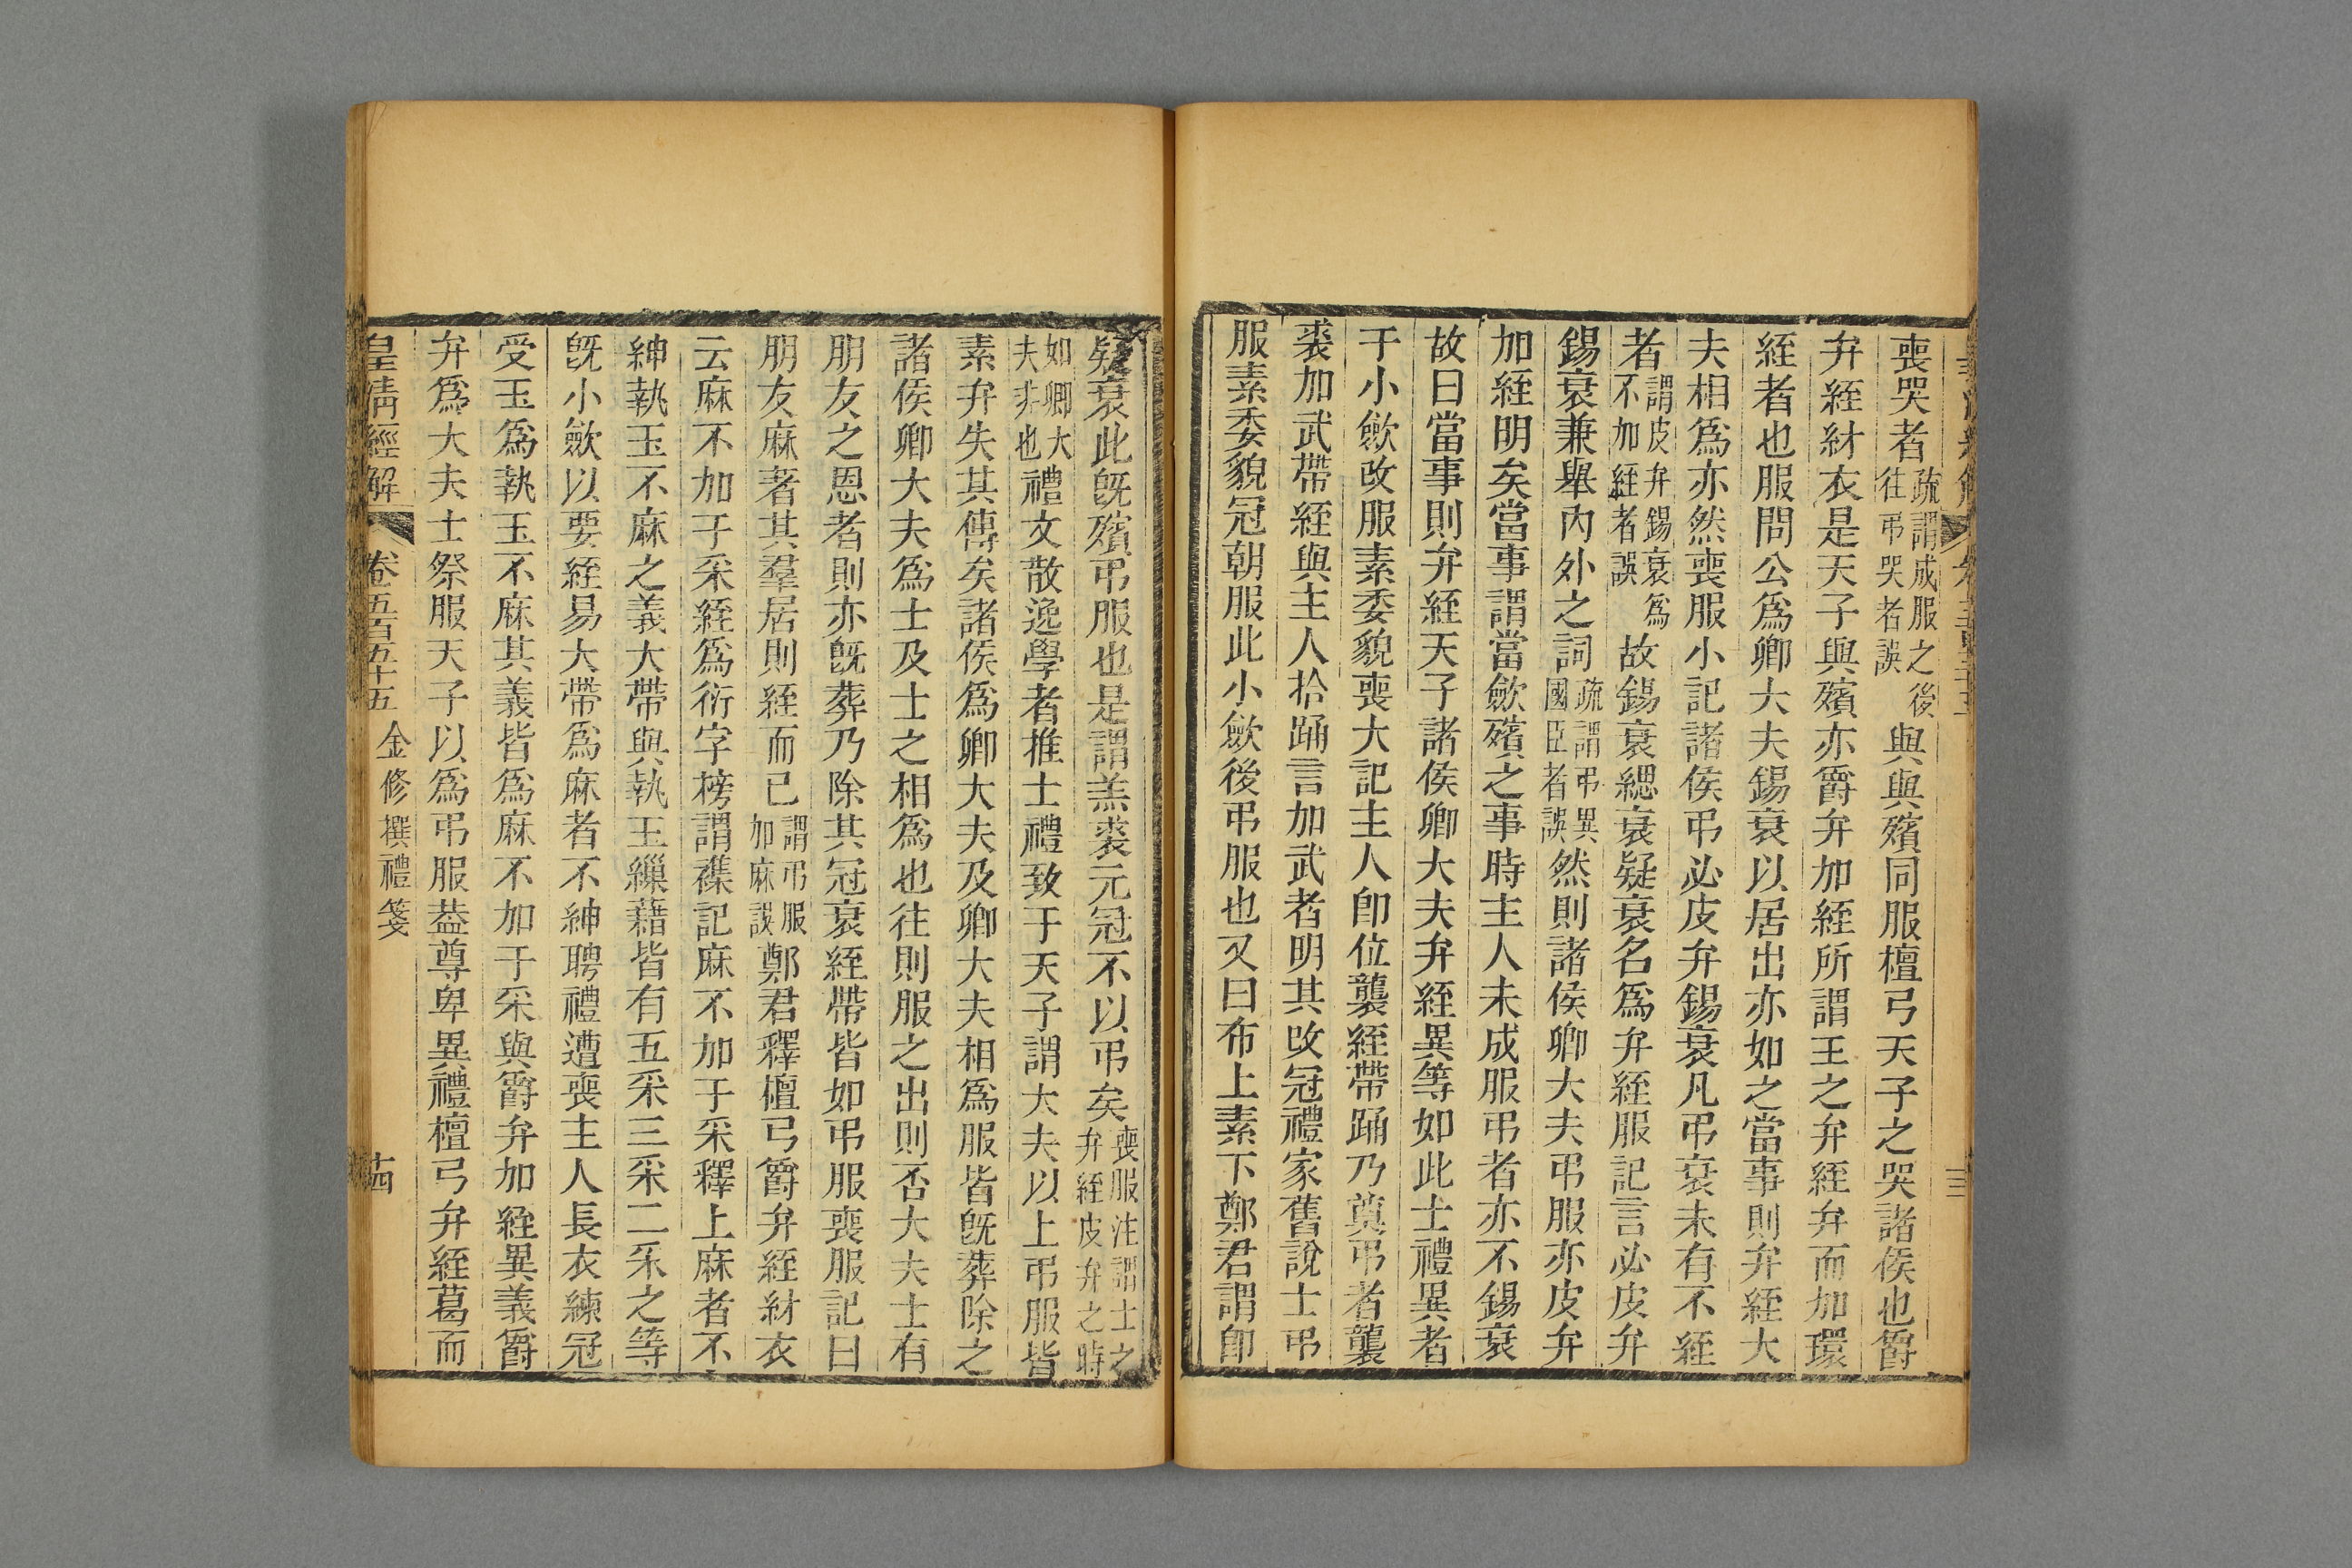 喪哭者疏謂成服之後往弔哭者誤與與殯同服檀弓天子之哭諸侯也爵
弁絰紂衣是天子與殯亦爵弁加絰所謂王之弁絰弁而加環
絰者也服問公爲卿大夫錫衰以居出亦如之當事則弁絰大
夫相爲亦然喪服小記諸侯弔必皮弁錫衰凡弔衰未有不絰
者謂皮弁錫衰爲不加絰者誤故錫衰緦衰疑衰名爲弁絰服記言必皮弁
錫衰兼舉內外之詞疏謂弔異國臣者誤然則諸侯卿大夫弔服亦皮弁
加絰明矣當事謂當歛殯之事時主人未成服弔者亦不錫衰
故曰當事則弁絰天子諸侯卿大夫弁絰異等如此士禮異者
于小歛改服素委貌喪大記主人卽位襲絰帶踊乃奠弔者襲
裘加武帶絰與主人拾踊言加武者明其改冠禮家舊說士弔
服素委貌冠朝服此小歛後弔服也又曰布上素下鄭君謂卽
疑衰此旣殯弔服也是謂羔裘元冠不以弔矣喪服注謂士之弁絰皮弁之時
如卿大夫非也禮文散逸學者推士禮致于天子謂大夫以上弔服皆
素弁失其傳矣諸侯爲卿大夫及卿大夫相爲服皆旣葬除之
諸侯卿大夫爲士及士之相爲也往則服之出則否大夫士有
朋友之恩者則亦旣葬乃除其冠衰絰帶皆如弔服喪服記曰
朋友麻著其羣居則絰而已謂弔服加麻誤鄭君釋檀弓爵弁絰紂衣
云麻不加于采絰爲衍字榜謂襍記麻不加于采釋上麻者不
紳執玉不麻之義大帶與執玉繅藉皆有五采三采二采之等
旣小歛以要絰易大帶爲麻者不紳聘禮遭喪主人長衣練冠
受玉爲執玉不麻其義皆爲麻不加于采與爵弁加絰異義爵
弁爲大夫士祭服天子以爲弔服葢尊卑異禮檀弓弁絰葛而
皇淸經解 卷五百五十五 金修撰禮箋 十四